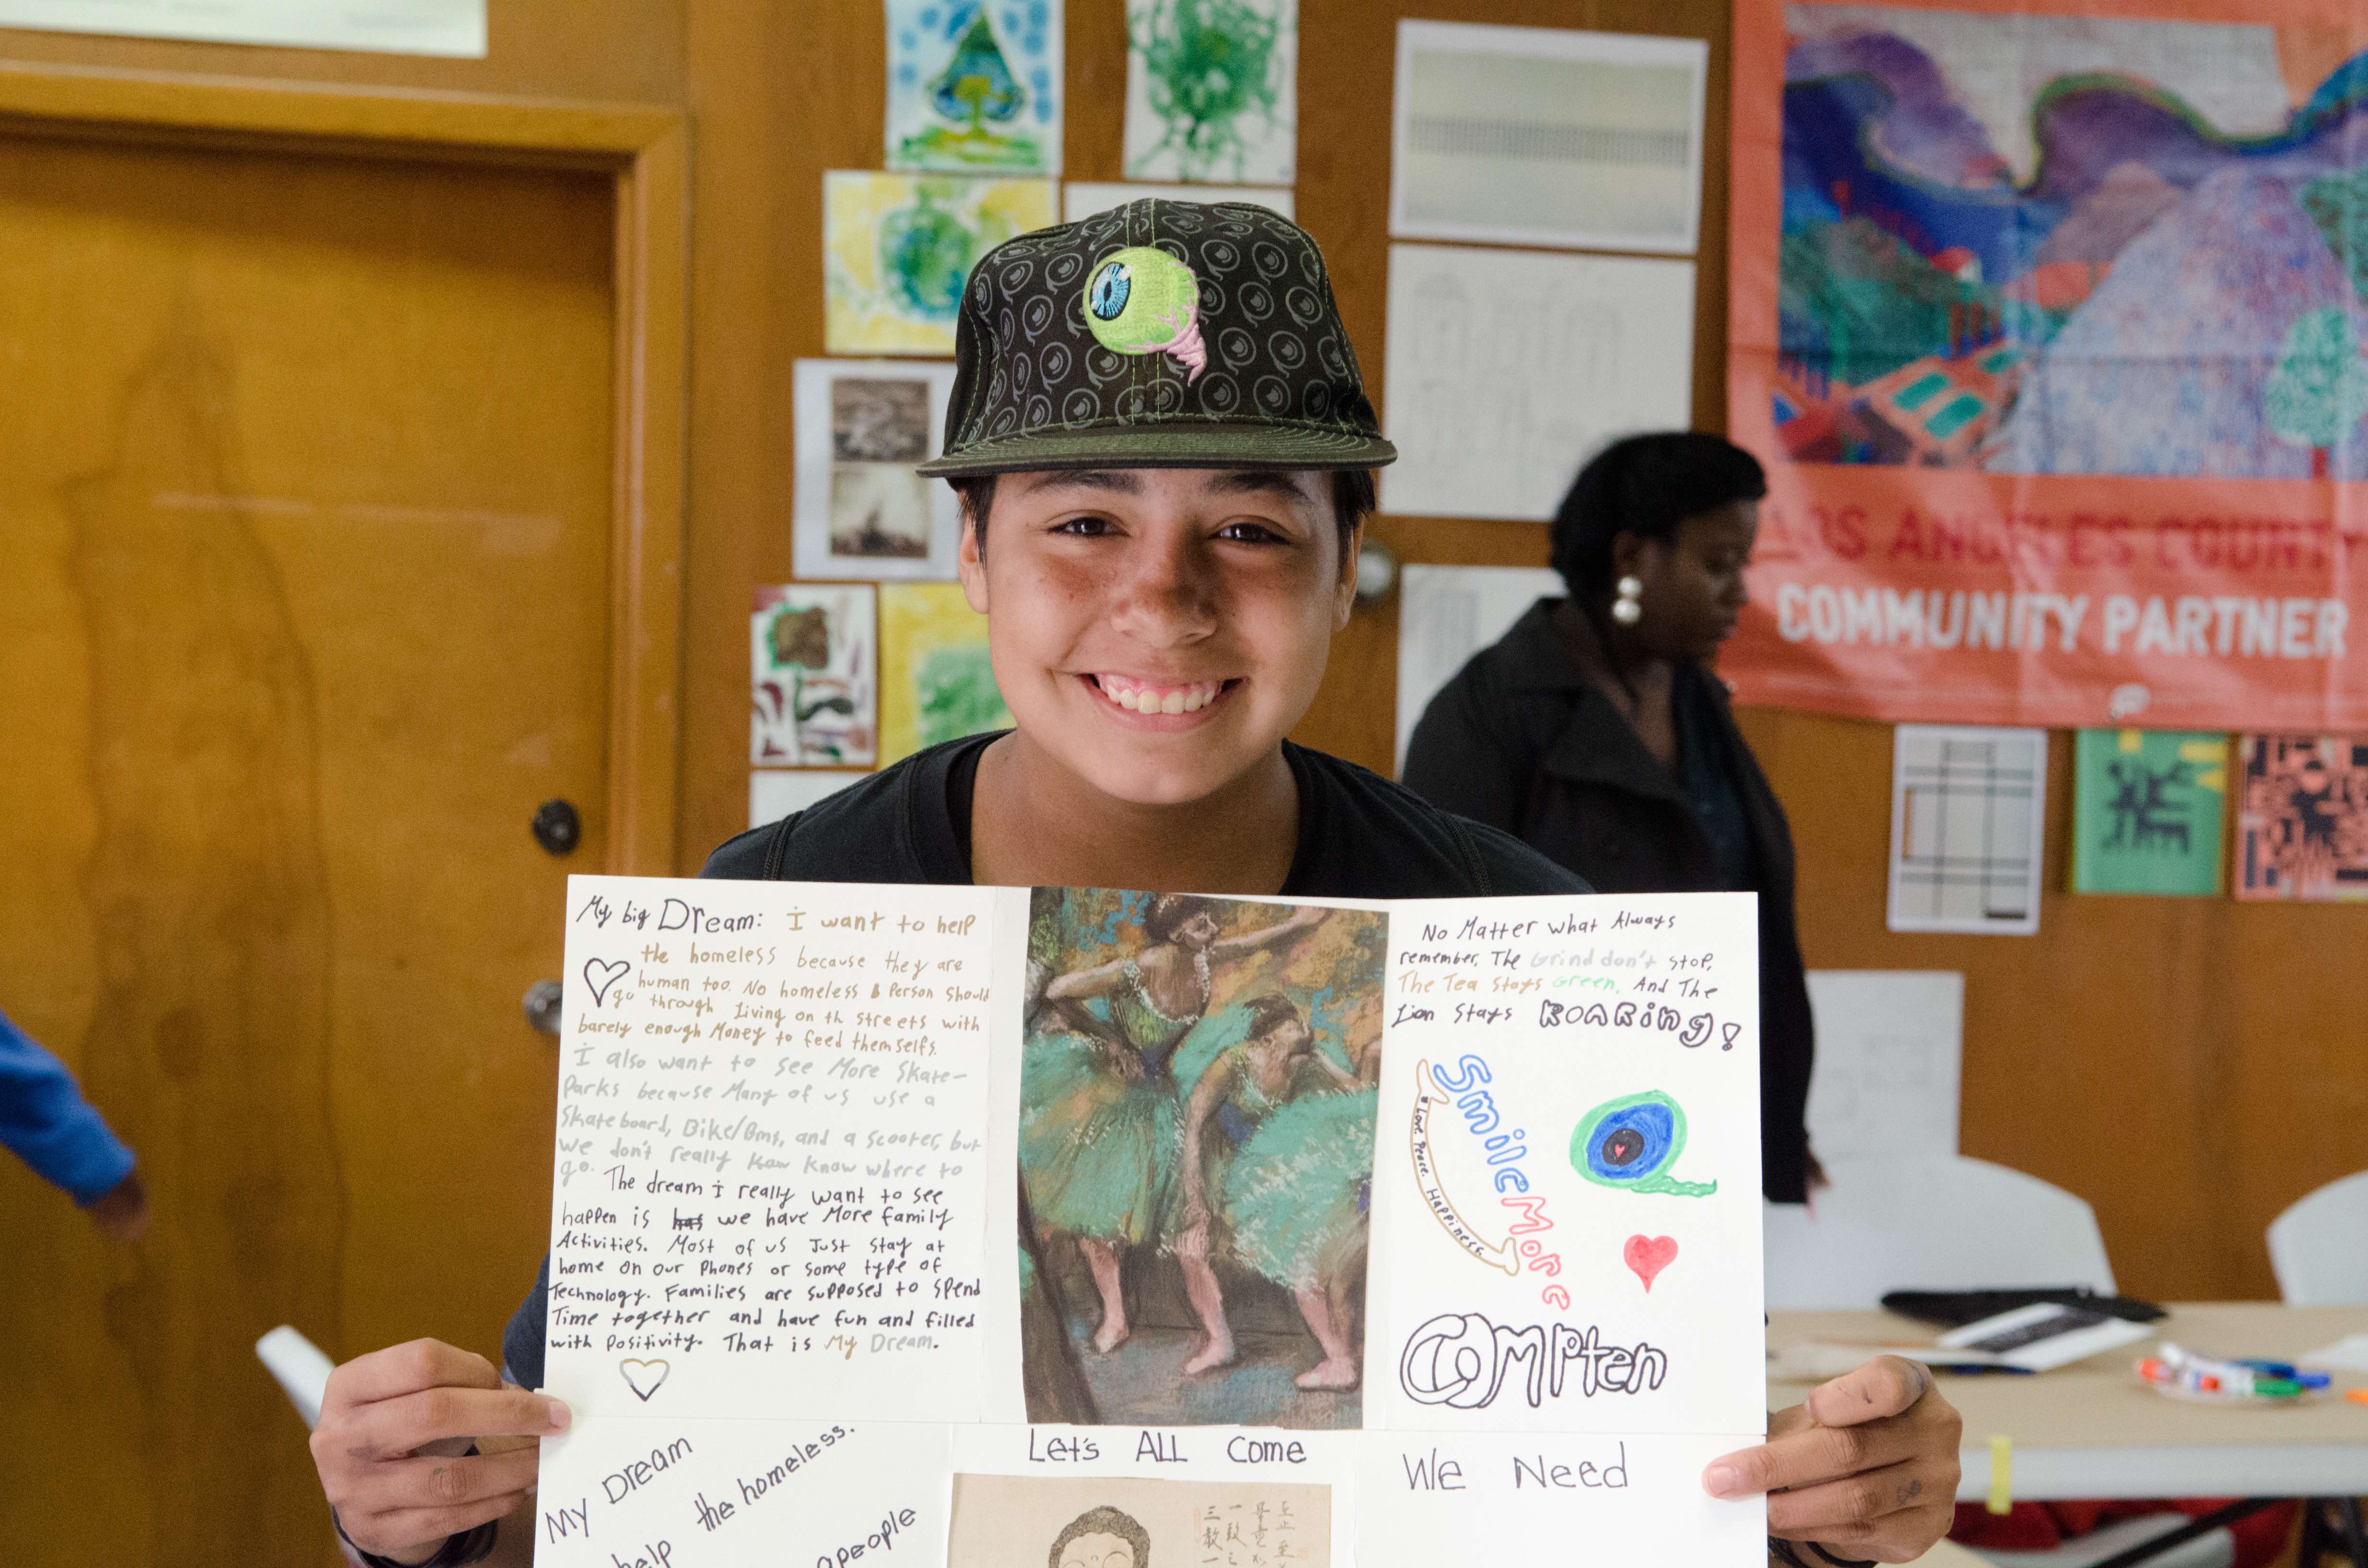 LOS ANGELES COUNTY
COMMUNITY PARTNER
My big Dream: i want to help
the homeless because they are
human too. No homeless Person should
go through Living on th streets with
barely enough Money to feed themselfs.
I also want to see More Skate-
Parks because Many of us use a
Skateboard, Bike/Bmx, and a scooter, but
we don't really know where to
go. The dream i really want to see
happen is has we have More family
Activities. Most of us Just stay at
home on our Phones or some type of
Technology. Families are supposed to spend
Time together and have fun and filled
with Positivity. That is My Dream.
No Matter what Always
remember, The Grind don't stop,
The Tea Stays Green, And The
Lion Stays ROARing!
Smile More
#Love. Peace. Happiness.
COMPten
My Dream
help the homeless.
people
Let's ALL Come
We Need
三教一
一段之